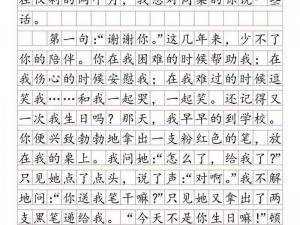 在仅剩的两个月，我想对同桌的你说一些
话。
第一句：“谢谢你。”这几年来，少不了
你的陪伴。你在我困难的时候帮助我；在
我伤心的时候安慰我；在我难过的时候逗
笑我……和我一起哭，一起笑。还记得又
一次我生日吗？那天，我早早的到学校。
你便兴致勃勃地拿出一支粉红色的笔，放
在我的桌上。我问她：“怎么了，给我了？”
只见她点了点头，说了声：“对啊。”我不解
地问：“你送我笔干嘛？”只见她又拿出了两
支黑笔递给我。“今天不是你生日嘛！”顿